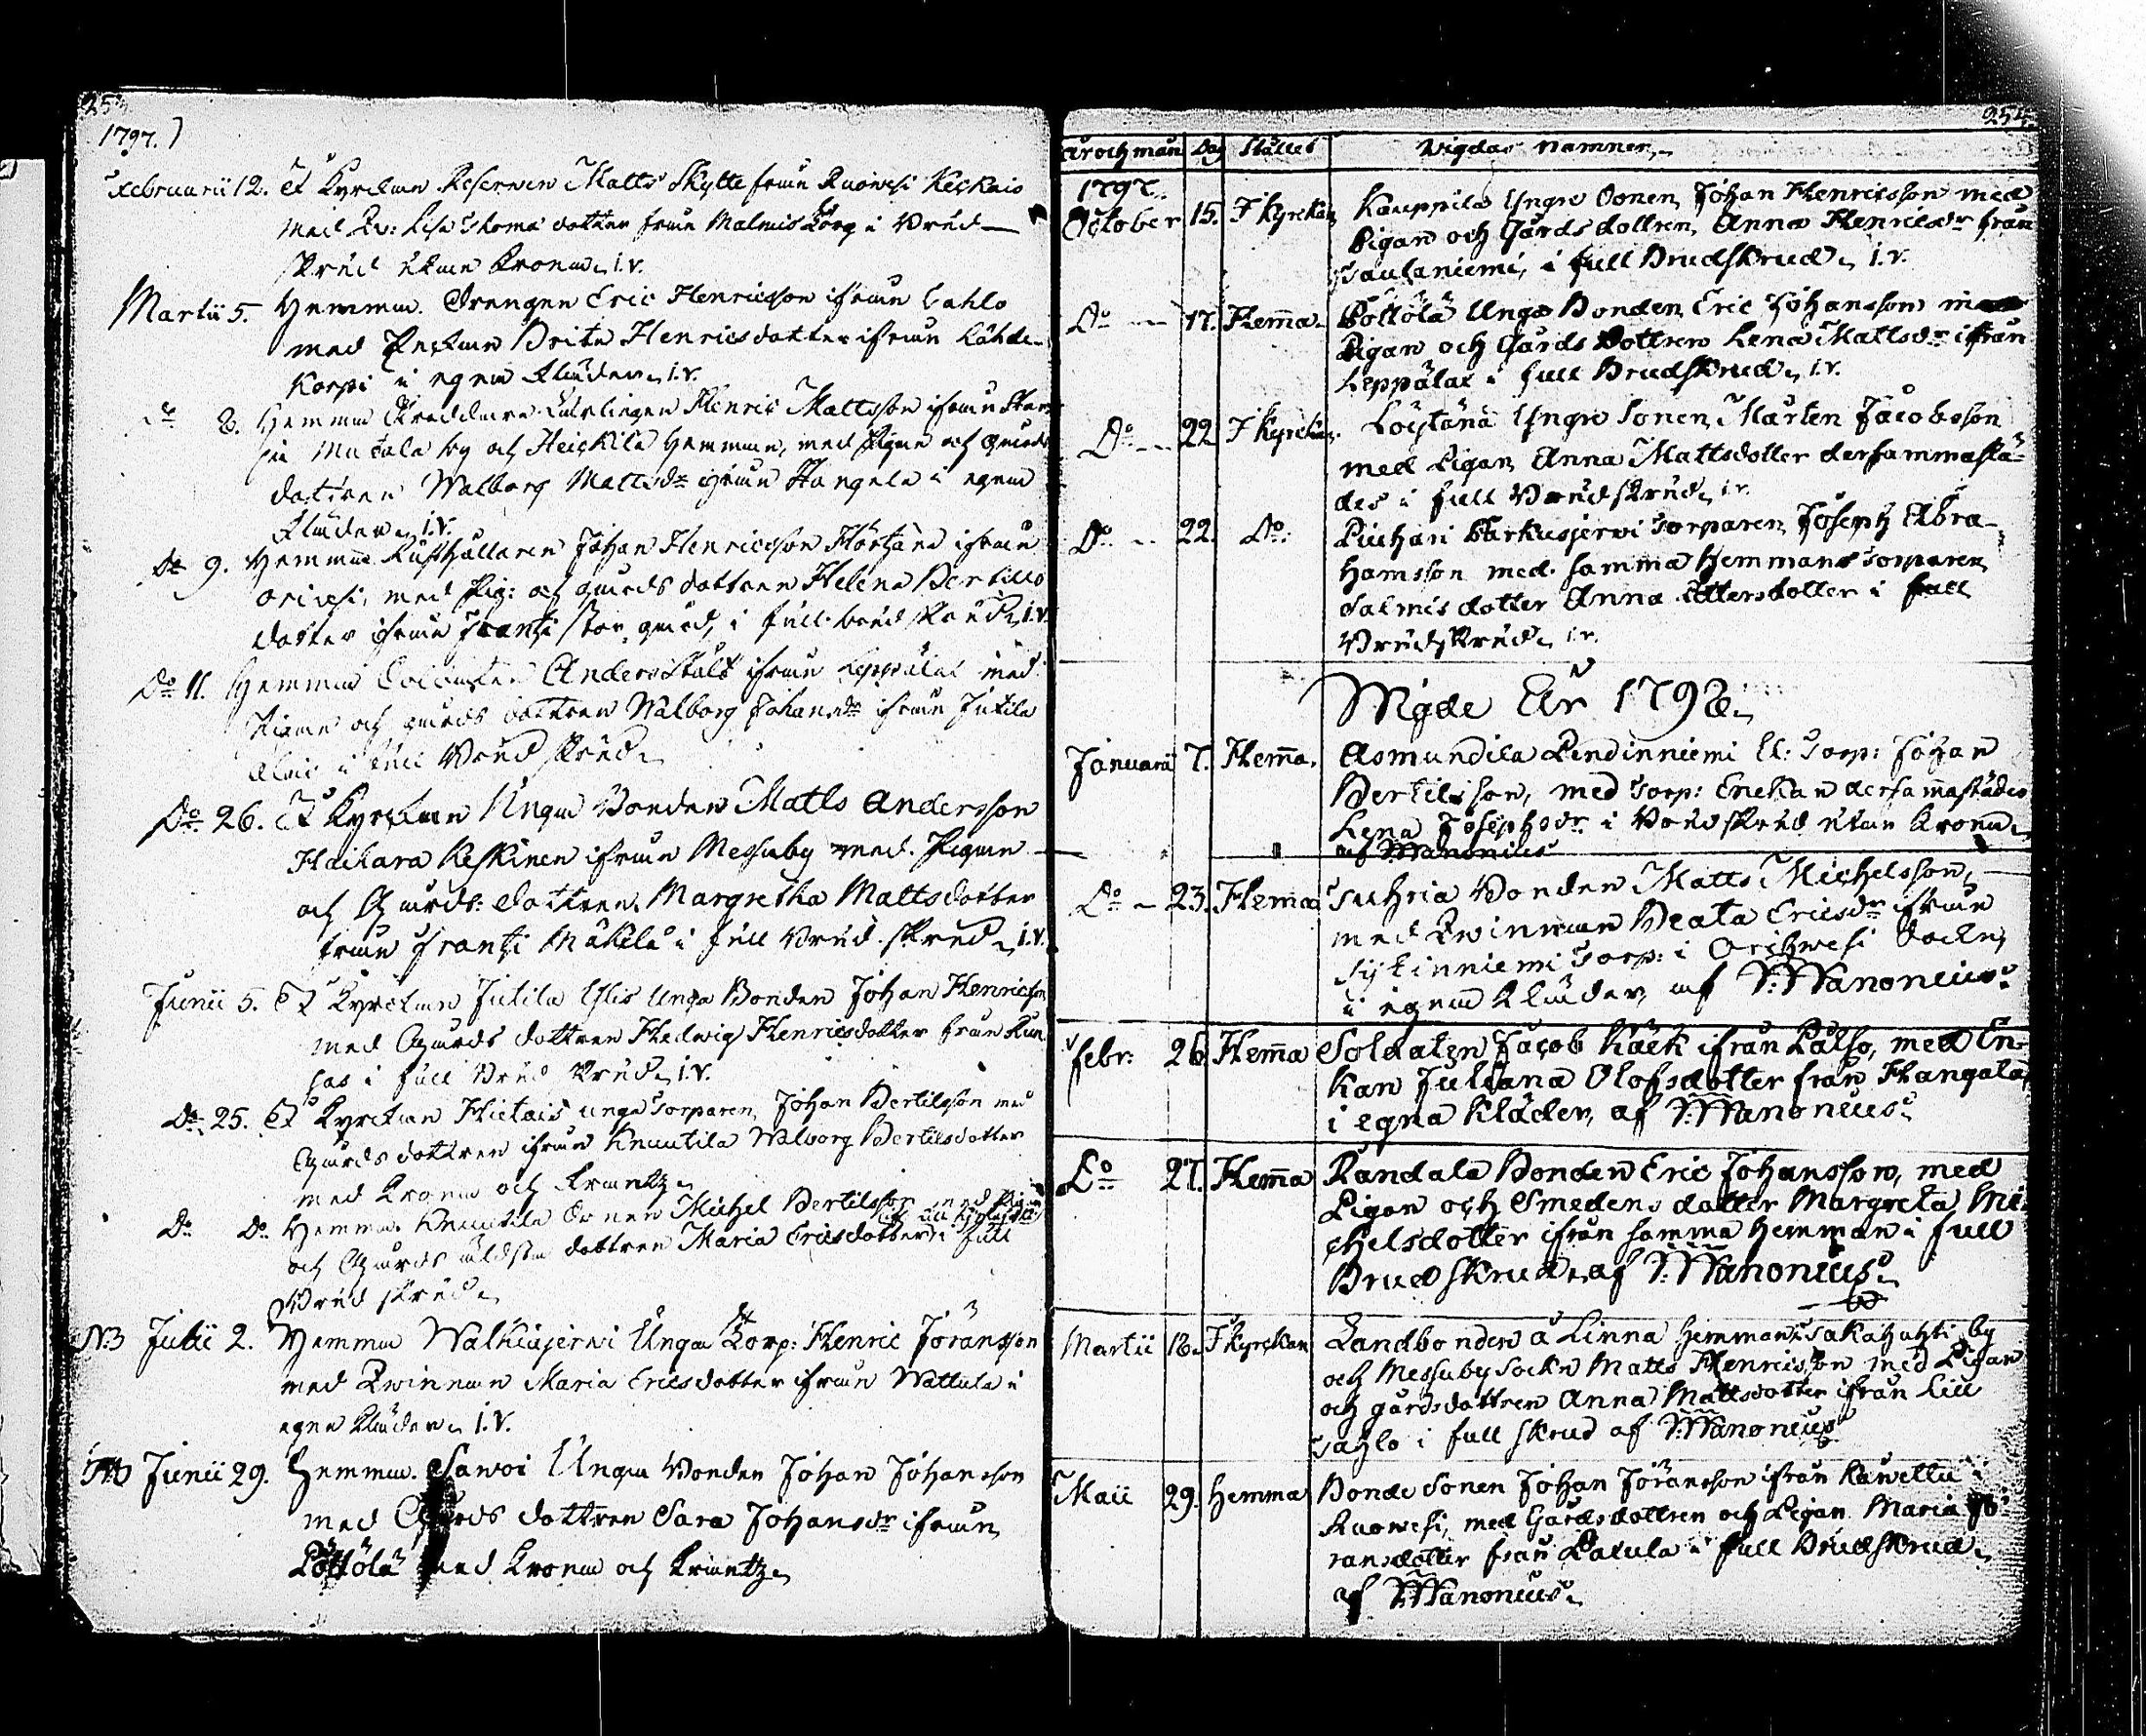 253.
1797.)
Februarii 12. I Kyrckan Reserven Matts Skytte från Ruowesi Keckais
med Qv: Lisa Thomæ dotter från Malmis Torp i Brud
skrud utan Krona. i.v.
Martii 5. Hemma. Drengen Eric Henricsson ifrån Cahlo
med Enckan Brita Henricsdotter ifrån Lähde
Korpi i egna Kläder. i.v.
Do 8. Hemma Skreddare Lärlingen Henric Mattsson ifrån
Mutala by och Heickilä Hemman, med Pigan och gårds
dottren Walborg Mattsdr ifrån Hangala i egna
Kläder. i.v.
Do 9. Hemma Rusthållaren Johan Henricsson Hörtzänä ifrån
Orivesi, med Pig: och gårds dottren Helena Bertils
dotter ifrån Frantzi Stor gård, i full brud skrud. i.v.
Do 11. Hemma Anders Stålt ifrån Leppälax med
Pigan och gårds dottren Walborg Johansdr ifrån Jutila
Alais i full Brud skrud.
Do 26. I Kyrckan Unga Bonden Matts Andersson
Haihara Keskinen ifrån Messuby med Pigan
och Gårds: dottren Margretha Mattsdotter
från Frantzi Mäkelä i full Brud skrud. i.v.
Junii 5. I Kyrckan Jutila Ylis Unga Bonden Johan Henricsson
med Gårds dottren Hedwig Henricsdotter från
i full Brud skrud. i.v.
Do 25. I Kyrckan Hietais unga Torparen Johan Bertilsson med
Gårds dottren ifrån Knuutila Walborg Bertilsdotter
med Krona och Krantz.
Do Do Hemma. Knuutila Sonen Michel Bertilsson med Pigan
och Gårds äldsta dottren Maria Ericsdotter i full
Brud skrud.
NB Julii 2. Hemma Walkiajerwi Unga Torp: Henric Jöransson
med Qwinnan Maria Ericsdotter ifrån Wattula i
egna Kläder. i.v.
NB Junii 29. Hemma. Sawoi Unga Bonden Johan Johansson
med Gårds dottren Sara Johansdr ifrån
Pöttölä med Krona och Krantz.
254.
År och mån Dag Stället Wigdas Namner.
1797.
October 15. I Kyrckan Kauppila Yngre Sonen Johan Henricsson med
Pigan och Gårds dottren Anna Henricsdr från
Saulaniemi, i full Brudskrud. i.v.
Do 17. Hem̄a. Pöttölä Unga Bonden Eric Johansson med
Pigan och Gårds Dottren Lena Mattsdr ifrån
Leppälax i full Brudskrud. i.v.
Do 22. I Kyrckan. Löytänä Yngre Sonen Mårten Jacobsson
med Pigan Anna Mattsdotter dersammastä-
des i full Brudskrud. i.v.
Do 22. Do: Puchari Parkusjerwi Torparen Joseph Abra-
hamsson med samma Hemmans Torparen
Salmis dotter Anna Pettersdotter i full
Brudskrud. i.v.
Wigde År 1798.
Januarii 7. Hem̄a. Asmundila Pendinniemi El: Torp: Johan
Bertilsson, med Torp: Enckan dersam̄astädes
Lena Josephsdr i Brudskrud utan Krona.
af Wanonius
Do 23. Hem̄a Suhria Bonden Matts Michelsson,
med Qwinnan Beata Ericsdr ifrån
Sytinniemi Torp: i Orihwesi Sockn,
i egna Kläder, af V: Wanonius.
Febr: 26. Hem̄a Soldaten Jacob Käck ifrån Palho, med En-
kan Juliana Olofsdotter från Hangala,
i egna Kläder, af V: Wanonius.
Do 27. Hem̄a Randala Bonden Eric Johansson, med
Pigan och Smedens dotter Margreta Mi-
chelsdotter ifrån samma Hemman i full
Brudskrud. af V: Wanonius.
Martii 18. I Kyrckan Landbonden å Linna Hemman Takahuhti by
och Messuby Sockn Matts Henricsson med Pigan
och gårdsdottren Anna Mattsdotter ifrån Lill
Sahlo i full skrud af V: Wanonius
Maii 29. Hemma Bonde Sonen Johan Jöransson ifrån Kawettu i
Ruowesi, med Gårdsdottren och Pigan Maria Jö-
ransdotter från Paxula i full Brudskrud.
af V: Wanonius.